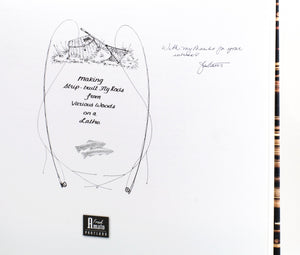 making
Strip-built Fly Rods
from
Various Woods
on a
Lathe
With my thanks for your
interest
Frank
Amato
PORTLAND